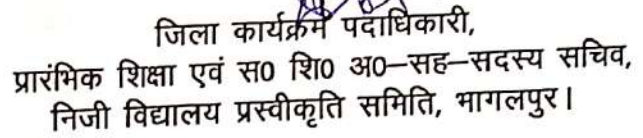 जिला कार्यक्रम पदाधिकारी,
प्रारंभिक शिक्षा एवं स0 शि0 अ0–सह–सदस्य सचिव,
निजी विद्यालय प्रस्वीकृति समिति, भागलपुर।